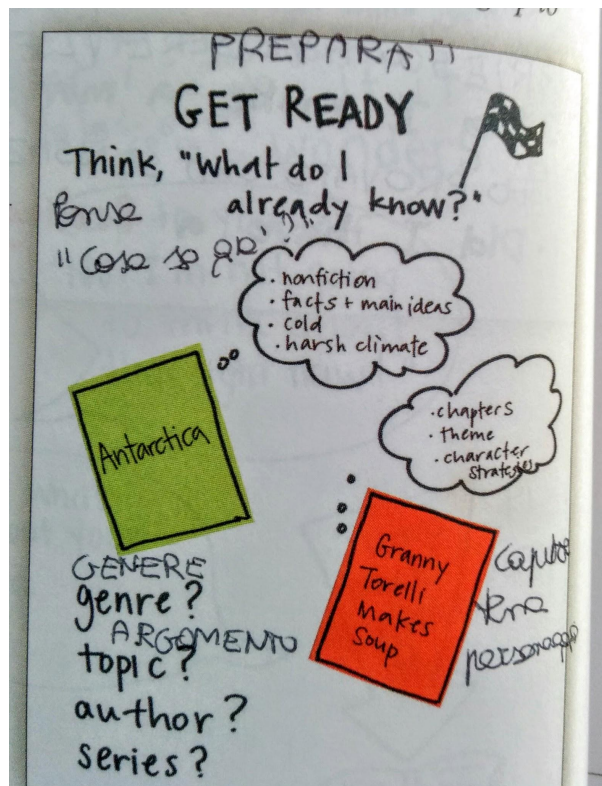 PREPARATI
GET READY
Think, "What do I
already know?"
Pensa
"Cosa so già?"
· nonfiction
· facts + main ideas
· cold
· harsh climate
Antarctica
· chapters
· theme
· character
strategies
Granny
Torelli
Makes
Soup
tema
personaggi
GENERE
genre?
ARGOMENTO
topic?
author?
series?